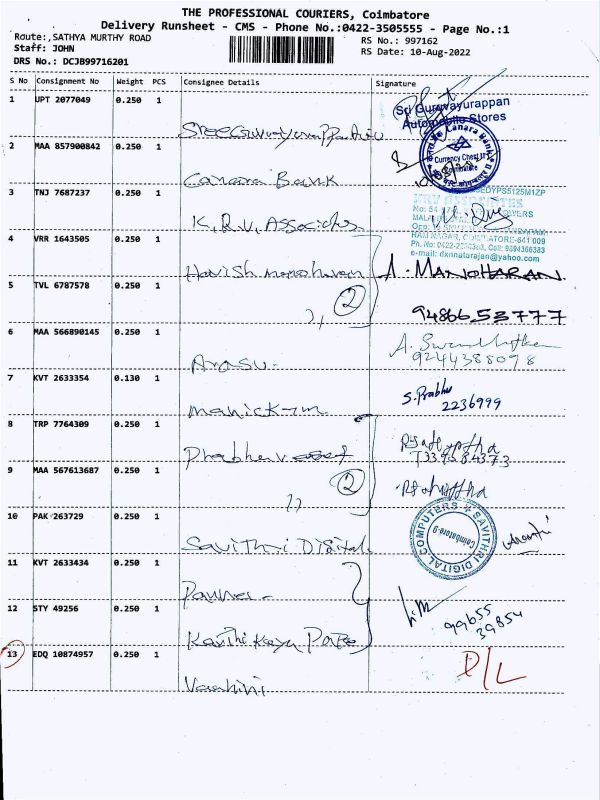 THE PROFESSIONAL COURIERS, Coimbatore
Delivery Runsheet - CMS - Phone No.:0422-3505555 - Page No.:1
Route:,SATHYA MURTHY ROAD
RS No.: 997162
Staff: JOHN
RS Date: 10-Aug-2022
DRS No.: DCJB99716201
S No Consignment No Weight PCS Consignee Details Signature
1 UPT 2077049 0.250 1
Sri Guruvayurappan
Automobile Stores
2 MAA 857900842 0.250 1
Canara Bank
Canara Bank
Currency Chest II
Coimbatore
3 TNJ 7687237 0.250 1
K.R.V. Associates
Ph. No: 0422-2230363, Cell: 9894366383
e-mail: dxnnatarajan@yahoo.com
4 VRR 1643505 0.250 1
A. MANOHARAN
5 TVL 6787578 0.250 1
2
9486653777
6 MAA 566890145 0.250 1
Arasu
9244388098
7 KVT 2633354 0.130 1
Manickam
S. Prabhu
2236999
8 TRP 7764309 0.250 1
9 MAA 567613687 0.250 1
2
10 PAK 263729 0.250 1
Savithri Digital
SAVITHRI DIGITAL COMPUTERS
Coimbatore-9
11 KVT 2633434 0.250 1
12 STY 49256 0.250 1
99655
39854
13 EDQ 10874957 0.250 1
D/L
Vaahini